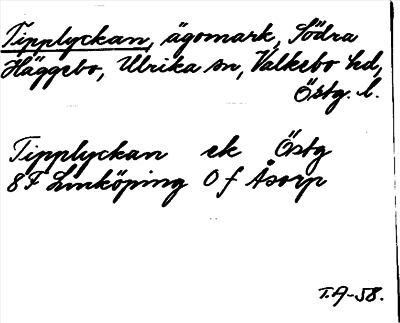 Tipplyckan, ägomark, Södra
Häggebo, Ulrika sn, Valkebo hd,
Östg. l.
Tipplyckan ek Östg
8F Linköping 0 f Åsorp
T.A-58.